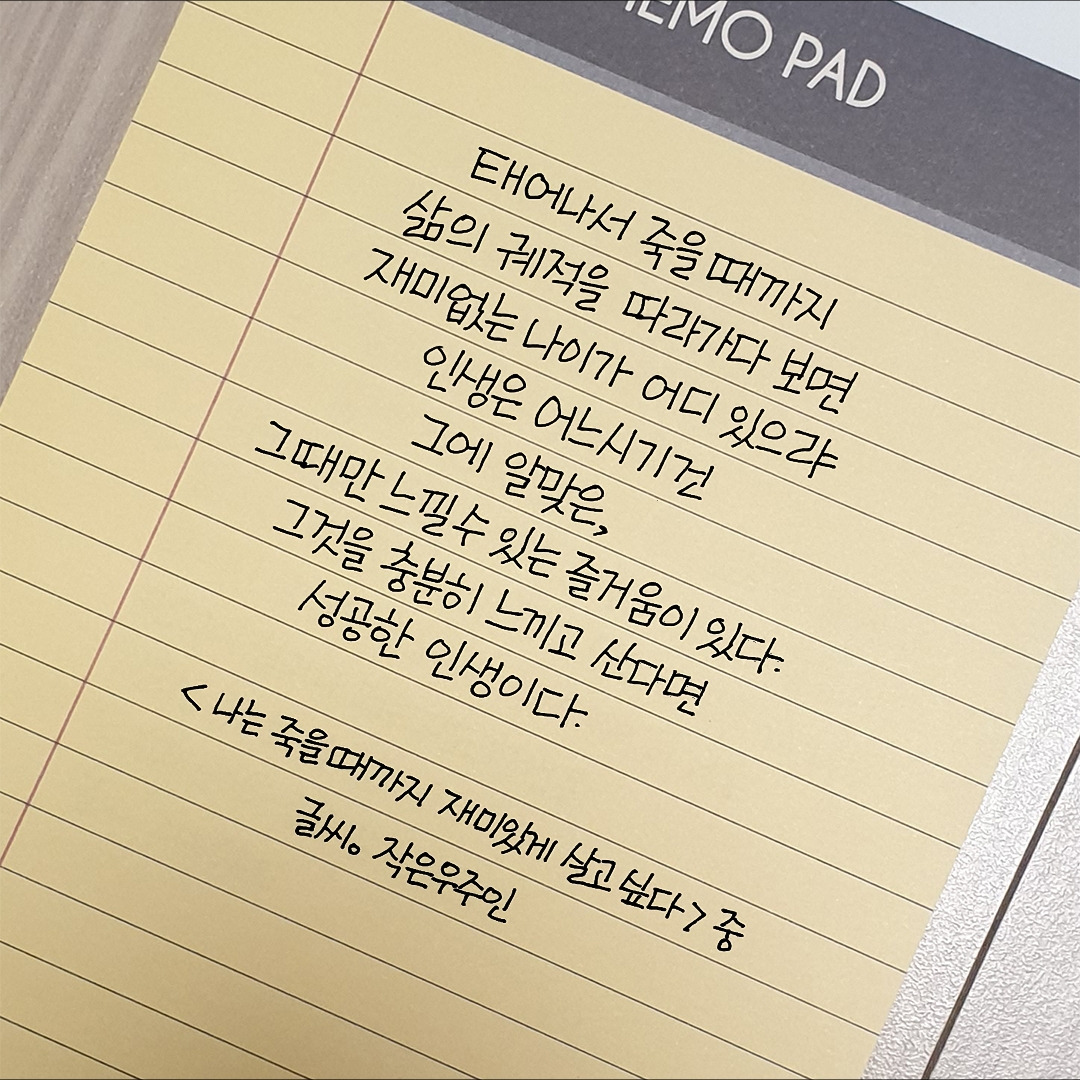 MEMO PAD
태어나서 죽을 때까지
삶의 궤적을 따라가다 보면
재미없는 나이가 어디 있으랴
인생은 어느시기건
그에 알맞은,
그때만 느낄 수 있는 즐거움이 있다.
그것을 충분히 느끼고 산다면
성공한 인생이다.
<나는 죽을 때까지 재미있게 살고 싶다> 중
글씨。 작은우주인